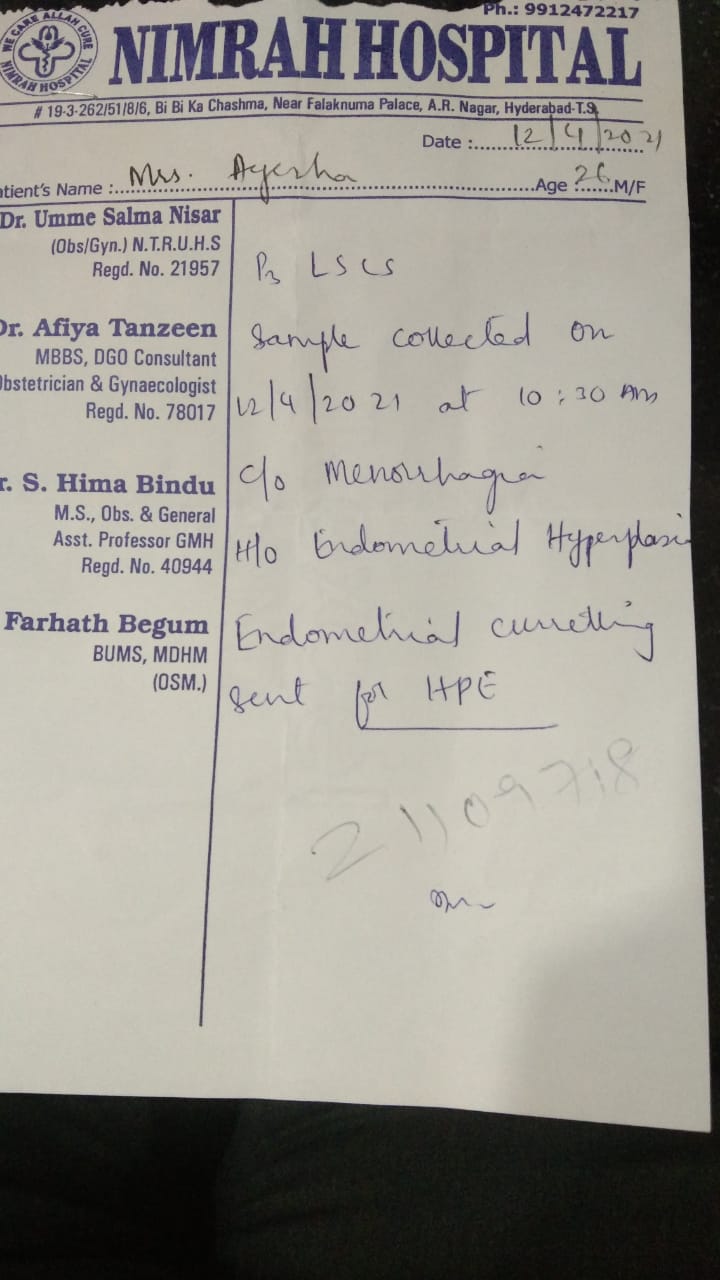 Ph.: 9912472217
WE CARE ALLAH CURE
NIMRAH HOSPITAL
NIMRAH HOSPITAL
# 19-3-262/51/8/6, Bi Bi Ka Chashma, Near Falaknuma Palace, A.R. Nagar, Hyderabad-T.S.
Date : 12/4/2021
atient's Name : Mrs. Ayesha Age : 26 M/F
Dr. Umme Salma Nisar
(Obs/Gyn.) N.T.R.U.H.S
Regd. No. 21957
Dr. Afiya Tanzeen
MBBS, DGO Consultant
Obstetrician & Gynaecologist
Regd. No. 78017
r. S. Hima Bindu
M.S., Obs. & General
Asst. Professor GMH
Regd. No. 40944
Farhath Begum
BUMS, MDHM
(OSM.)
P3 LSCS
Sample collected on
12/4/2021 at 10:30 AM
c/o Menorrhagia
H/o Endometrial Hyperplasi
Endometrial curretting
sent for HPE
21109718